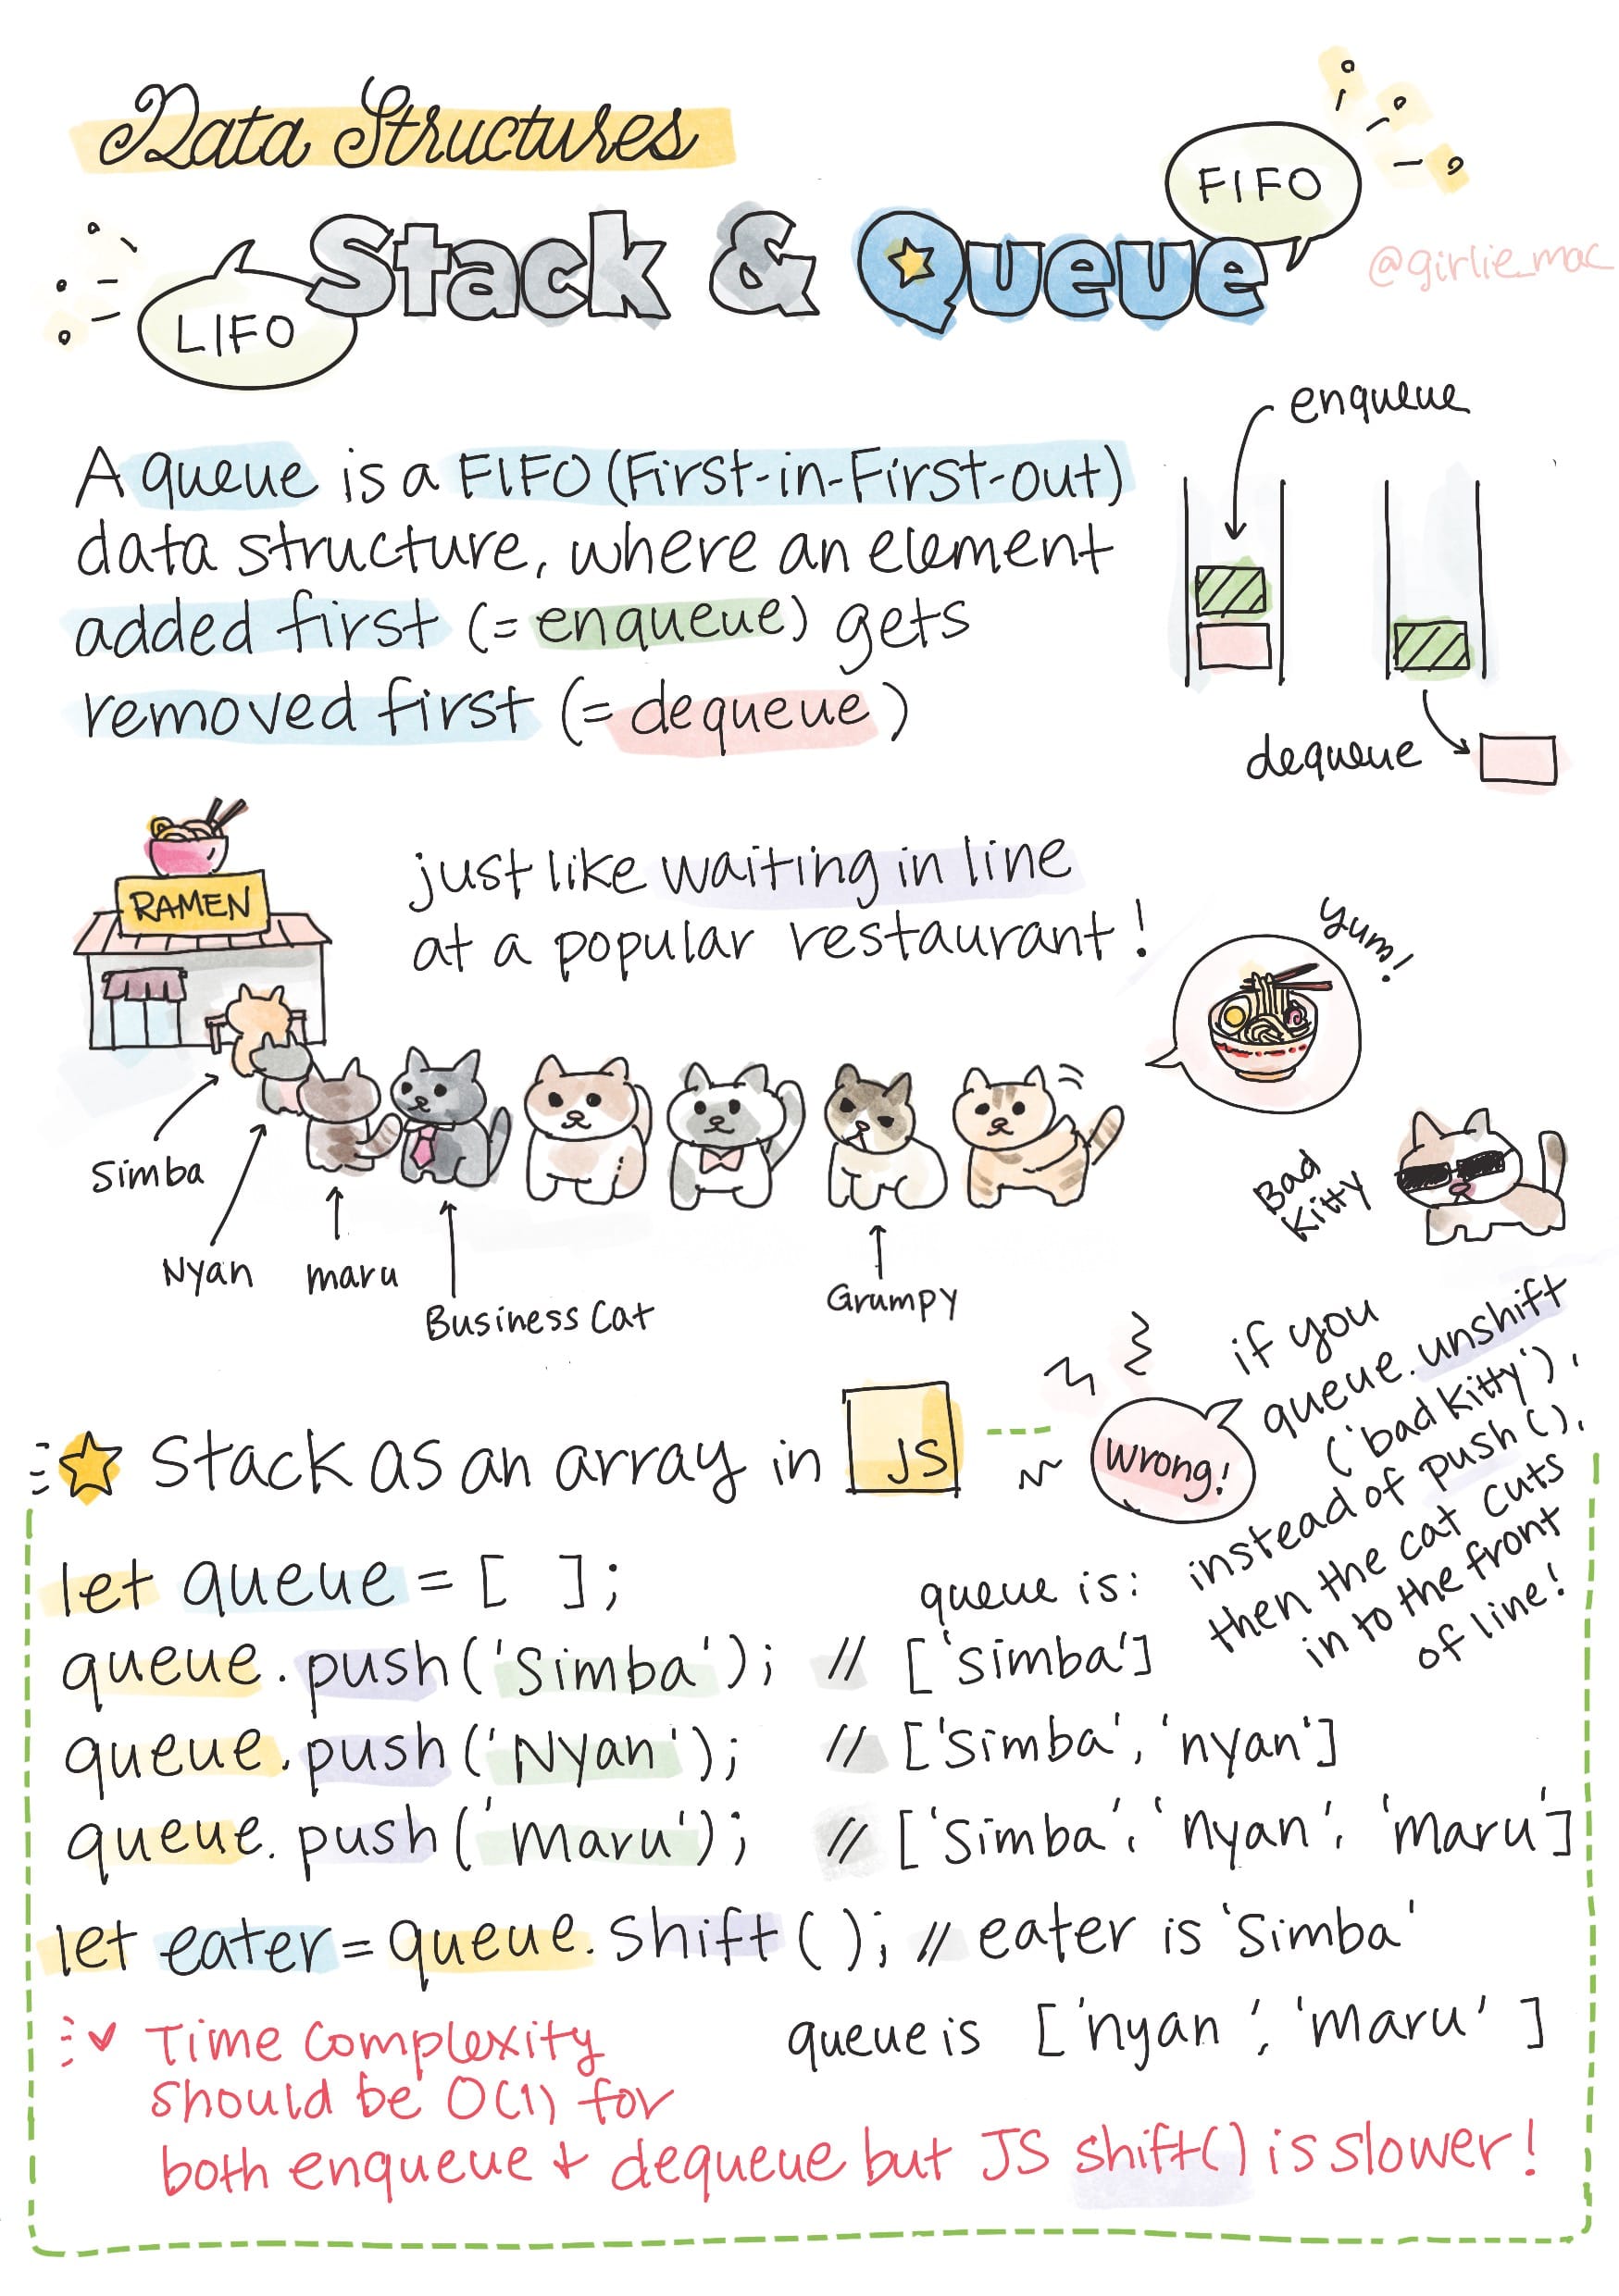 Data Structures
FIFO
Stack & Queue
@girlie_mac
LIFO
enqueue
A queue is a FIFO (First-in-First-out)
data structure, where an element
added first (= enqueue) gets
removed first (= dequeue)
dequeue
RAMEN
just like waiting in line
at a popular restaurant!
Yum!
Simba
Nyan
maru
Business Cat
Grumpy
Bad
Kitty
if you
queue.unshift
('bad kitty'),
instead of push(),
then the cat cuts
in to the front
of line!
Wrong!
Stack as an array in JS
let queue = [ ];
queue is:
queue.push('Simba'); // ['simba']
queue.push('Nyan'); // ['simba', 'nyan']
queue.push('Maru'); // ['simba', 'nyan', 'maru']
let eater = queue.shift(); // eater is 'simba'
queue is ['nyan', 'maru']
Time complexity
should be O(1) for
both enqueue + dequeue but JS shift() is slower!